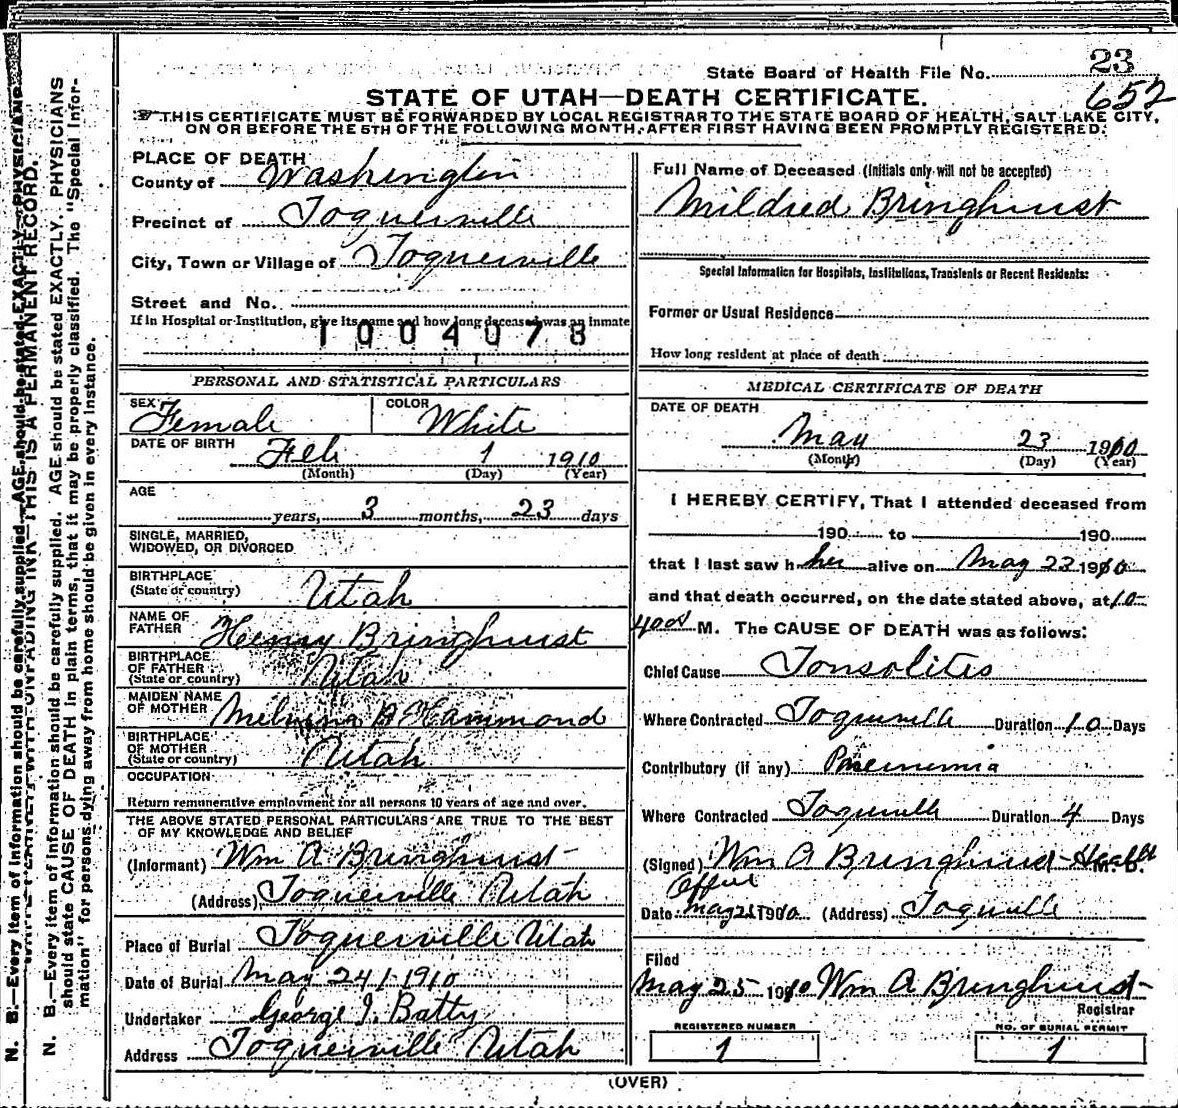 State Board of Health File No. 23
652
STATE OF UTAH—DEATH CERTIFICATE.
THIS CERTIFICATE MUST BE FORWARDED BY LOCAL REGISTRAR TO THE STATE BOARD OF HEALTH, SALT LAKE CITY,
ON OR BEFORE THE 5TH OF THE FOLLOWING MONTH, AFTER FIRST HAVING BEEN PROMPTLY REGISTERED.
PLACE OF DEATH
County of Washington
Precinct of Toquerville
City, Town or Village of Toquerville
Street and No.
If in Hospital or Institution, give its name and how long deceased was an inmate
1004078
PERSONAL AND STATISTICAL PARTICULARS
SEX Female COLOR White
DATE OF BIRTH Feb 1 1910
(Month) (Day) (Year)
AGE
years, 3 months, 23 days
SINGLE, MARRIED,
WIDOWED, OR DIVORCED
BIRTHPLACE
(State or country) Utah
NAME OF
FATHER Henry Bringhurst
BIRTHPLACE
OF FATHER
(State or country) Utah
MAIDEN NAME
OF MOTHER Melvina A Hammond
BIRTHPLACE
OF MOTHER
(State or country) Utah
OCCUPATION
Return remunerative employment for all persons 10 years of age and over.
THE ABOVE STATED PERSONAL PARTICULARS ARE TRUE TO THE BEST
OF MY KNOWLEDGE AND BELIEF
(Informant) Wm A Bringhurst
(Address) Toquerville Utah
Place of Burial Toquerville Utah
Date of Burial May 24 1910
Undertaker George J. Batty
Address Toquerville Utah
Full Name of Deceased (Initials only will not be accepted)
Mildred Bringhurst
Special Information for Hospitals, Institutions, Transients or Recent Residents:
Former or Usual Residence
How long resident at place of death
MEDICAL CERTIFICATE OF DEATH
DATE OF DEATH
May 23 1910
(Month) (Day) (Year)
I HEREBY CERTIFY, That I attended deceased from
190 to 190
that I last saw h her alive on May 23 1910
and that death occurred, on the date stated above, at 10
M. The CAUSE OF DEATH was as follows:
Chief Cause Tonsolites
Where Contracted Toquerville Duration 10 Days
Contributory (if any) Pneumonia
Where Contracted Toquerville Duration 4 Days
(Signed) Wm A Bringhurst Health M. D.
Officer
Date May 25 1910 (Address) Toquerville
Filed
May 25 1910 Wm A Bringhurst
Registrar
REGISTERED NUMBER
1
NO. OF BURIAL PERMIT
1
(OVER)
N. B.—Every item of information should be carefully supplied. AGE should be stated EXACTLY. PHYSICIANS
WRITE PLAINLY WITH UNFADING INK—THIS IS A PERMANENT RECORD.
N. B.—Every item of information should be carefully supplied. AGE should be stated EXACTLY. PHYSICIANS
should state CAUSE OF DEATH in plain terms, that it may be properly classified. The "Special Infor-
mation" for persons dying away from home should be given in every instance.